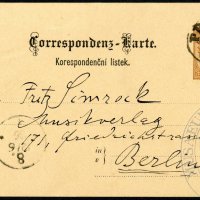 Correspondenz-Karte.
Korespondenční lístek.
Fritz Simrock
Musikverlag
171, Friedrichstrasse
in
Berlin